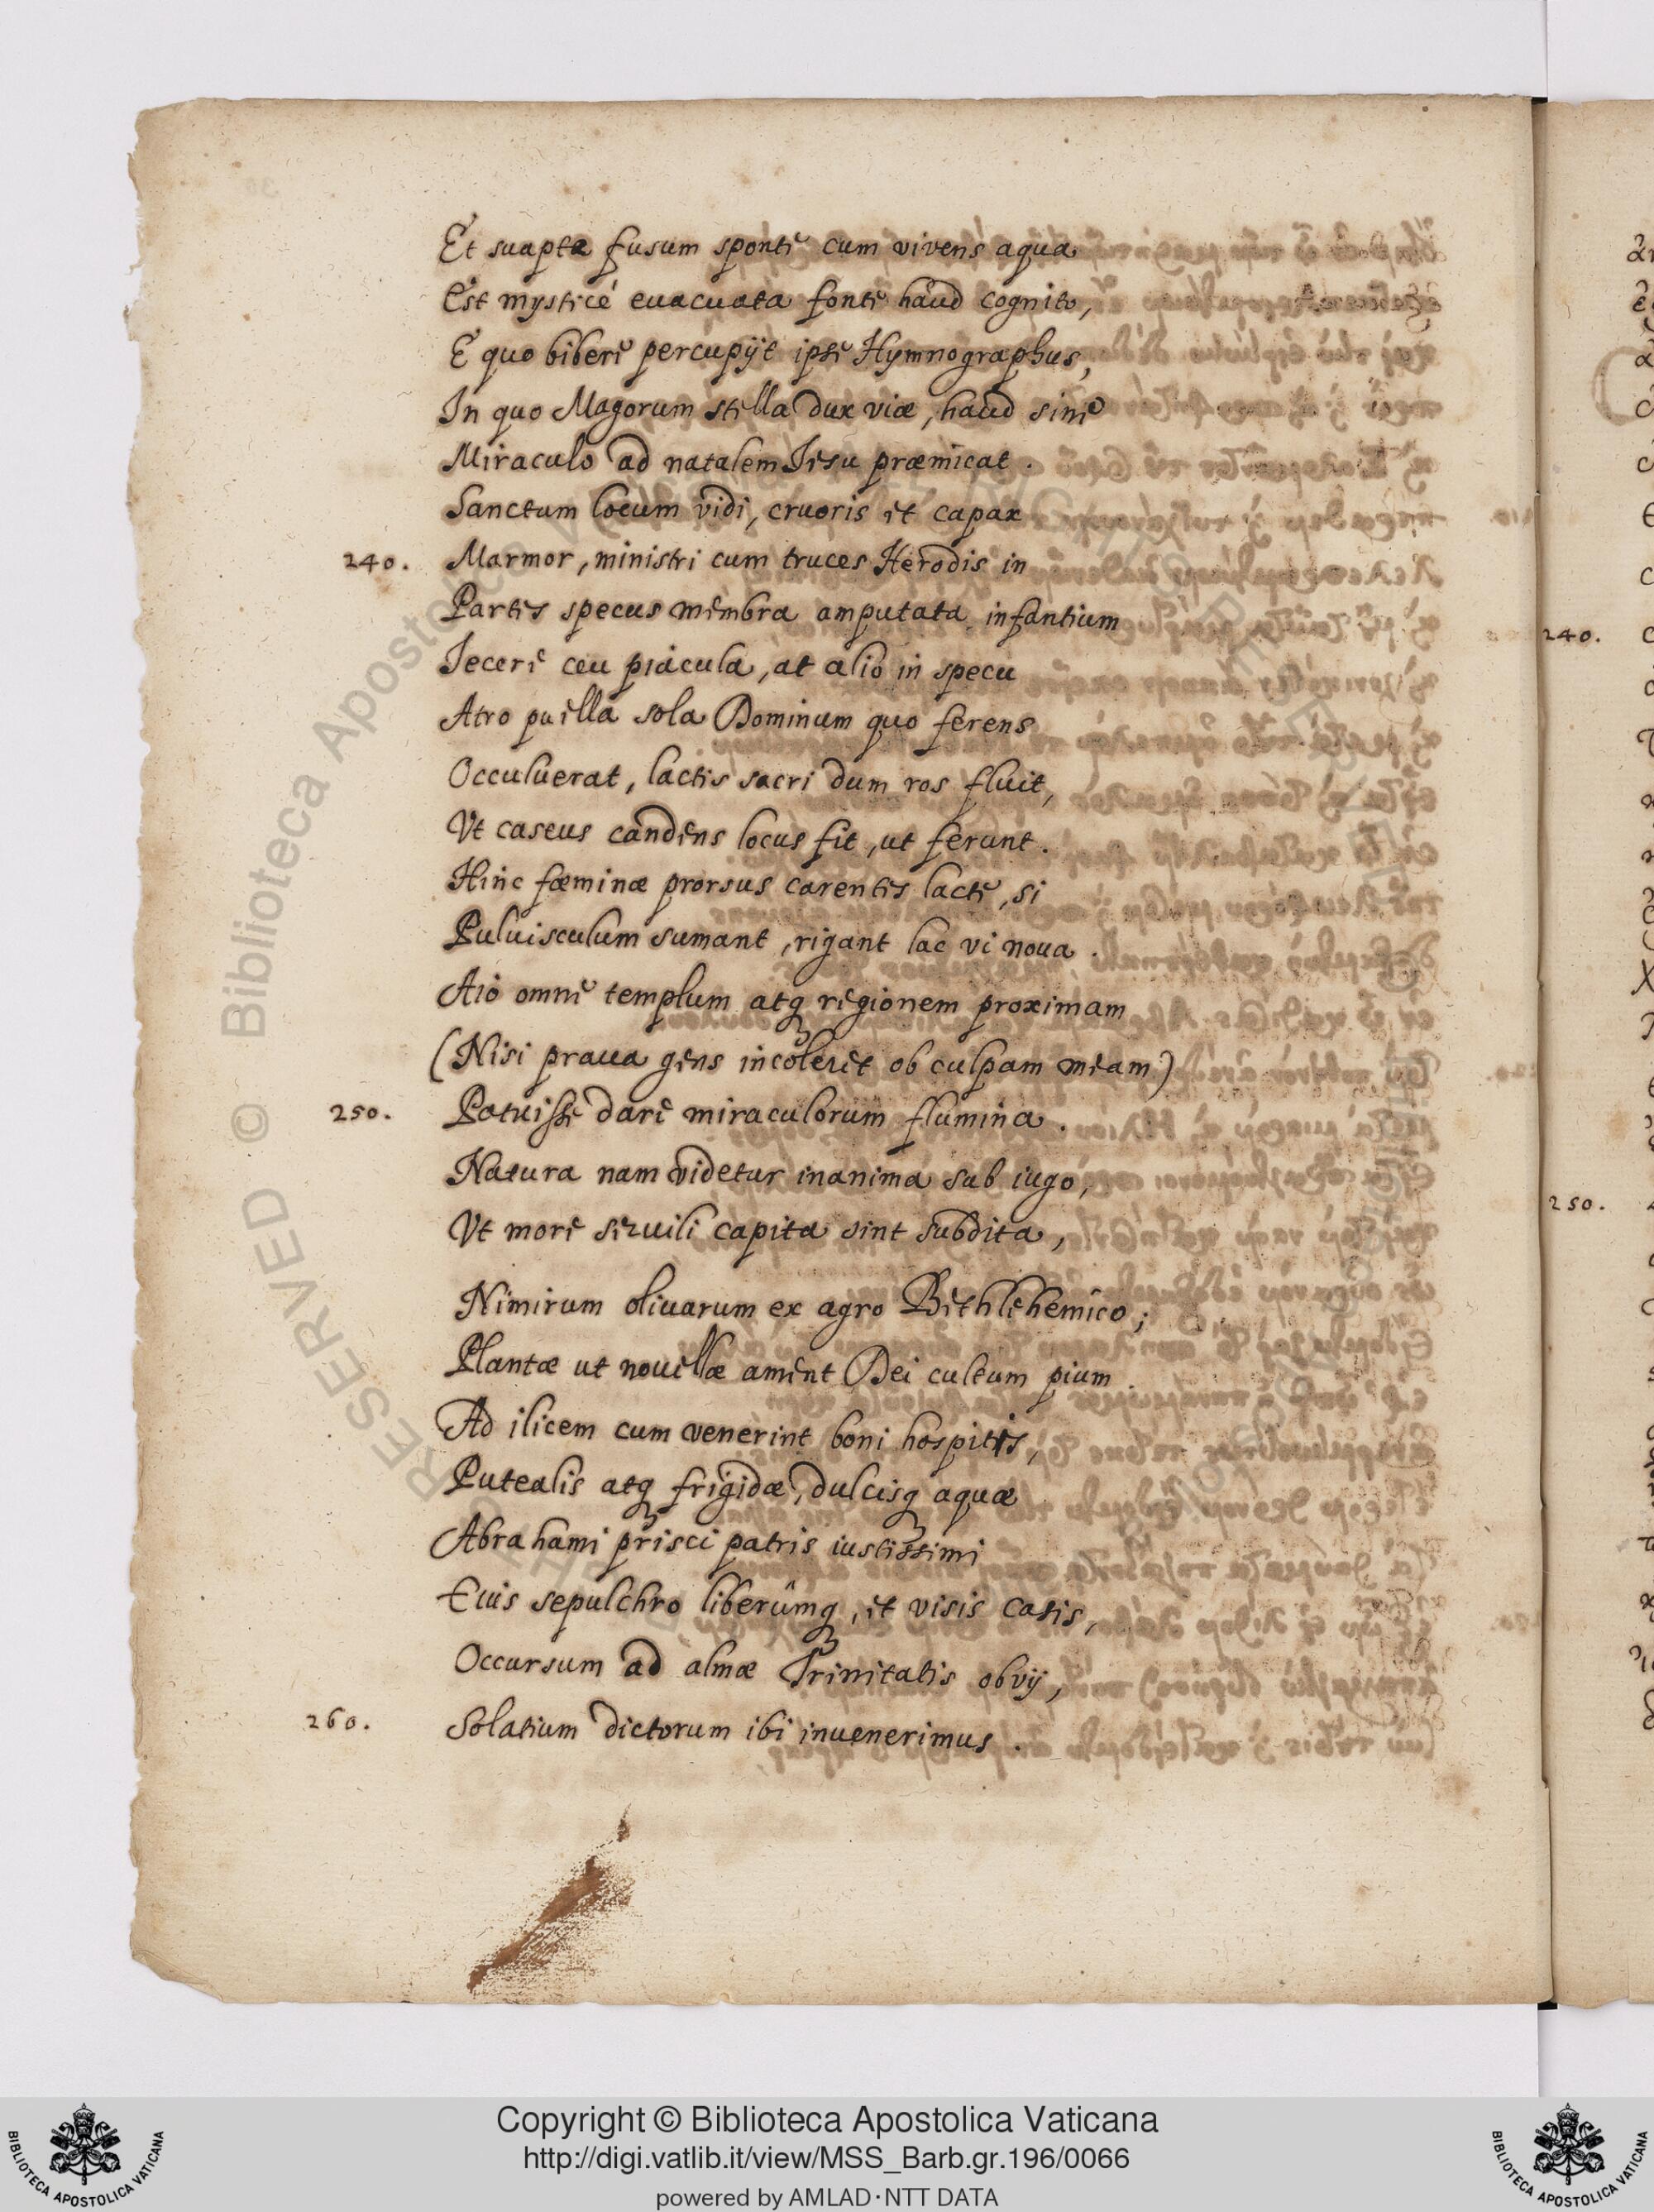 Et suapte fusum sponte cum vivens aqua
Est mysticé euacuata fonte haud cognito,
E quo bibere percupijt ipse Hymnographus,
In quo Magorum stella dux viæ, haud sine
Miraculo ad natalem Iesu præmicat.
Sanctum locum vidi, cruoris et capax
240. Marmor, ministri cum truces Herodis in
Partes specus membra amputata infantium
Iecere ceu piacula, at alio in specu
Atro puella sola Dominum quo ferens
Occuluerat, lactis sacri dum ros fluit,
Vt caseus candens locus fit, ut ferunt.
Hinc fœminæ prorsus carentes lacte, si
Puluisculum sumant, rigant lac vi noua.
Aio omne templum atq regionem proximam
(Nisi praua gens incoleret ob culpam meam)
250. Potuisse dare miraculorum flumina.
Natura nam videtur inanima sub iugo,
Vt more seruili capita sint subdita,
Nimirum oliuarum ex agro Bethlehemico;
Plantæ ut nouellæ ament Dei cultum pium.
Ad ilicem cum venerint boni hospites,
Putealis atq frigidæ, dulcisq aquæ
Abrahami prisci patris iustissimi
Eius sepulchro liberûmq, et visis casis,
Occursum ad almæ Trinitatis obvij,
260. Solatium dictorum ibi inuenerimus.
240.
250.
Copyright © Biblioteca Apostolica Vaticana
http://digi.vatlib.it/view/MSS_Barb.gr.196/0066
powered by AMLAD·NTT DATA
BIBLIOTECA APOSTOLICA VATICANA
BIBLIOTECA APOSTOLICA VATICANA